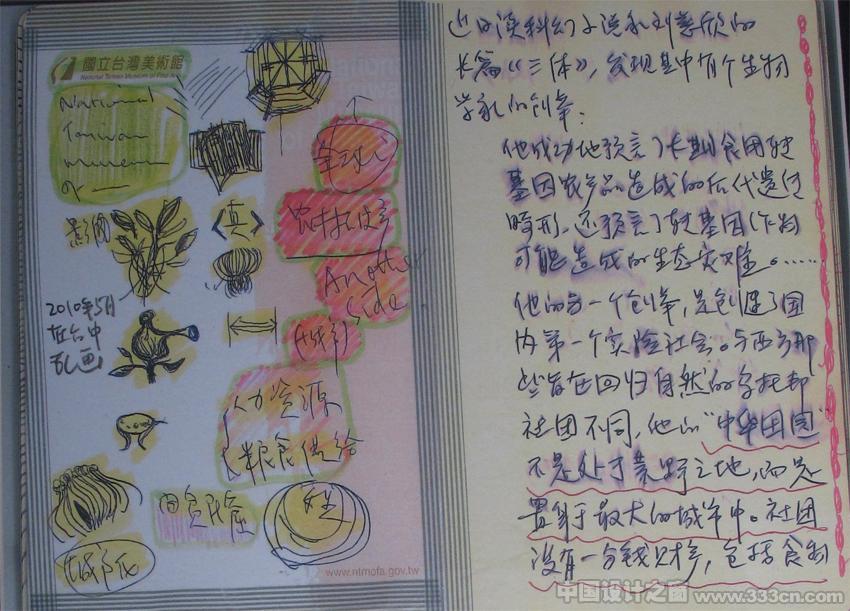 國立台灣美術館
National Taiwan Museum of Fine Arts
National
Taiwan
museum
of
《真》
农村破产
Another
side
2010年5月
在台中
乱画
城市
人力资源
粮食供给
www.ntmofa.gov.tw
近日读科幻小说家刘慈欣的
长篇《三体》，发现其中有个生物
学家的创举：
他成功地预言了长期食用转
基因农产品造成的后代遗传
畸形，还预言了转基因作物
可能造成的生态灾难。……
他的另一个创举，是创建了国
内第一个实验社会。与西方那
些旨在回归自然的乌托邦
社团不同，他的“中华田园”
不是处于荒野之地，而是
置身于最大的城市中。社团
没有一分钱财产，包括食物
中国设计之窗 www.333cn.com